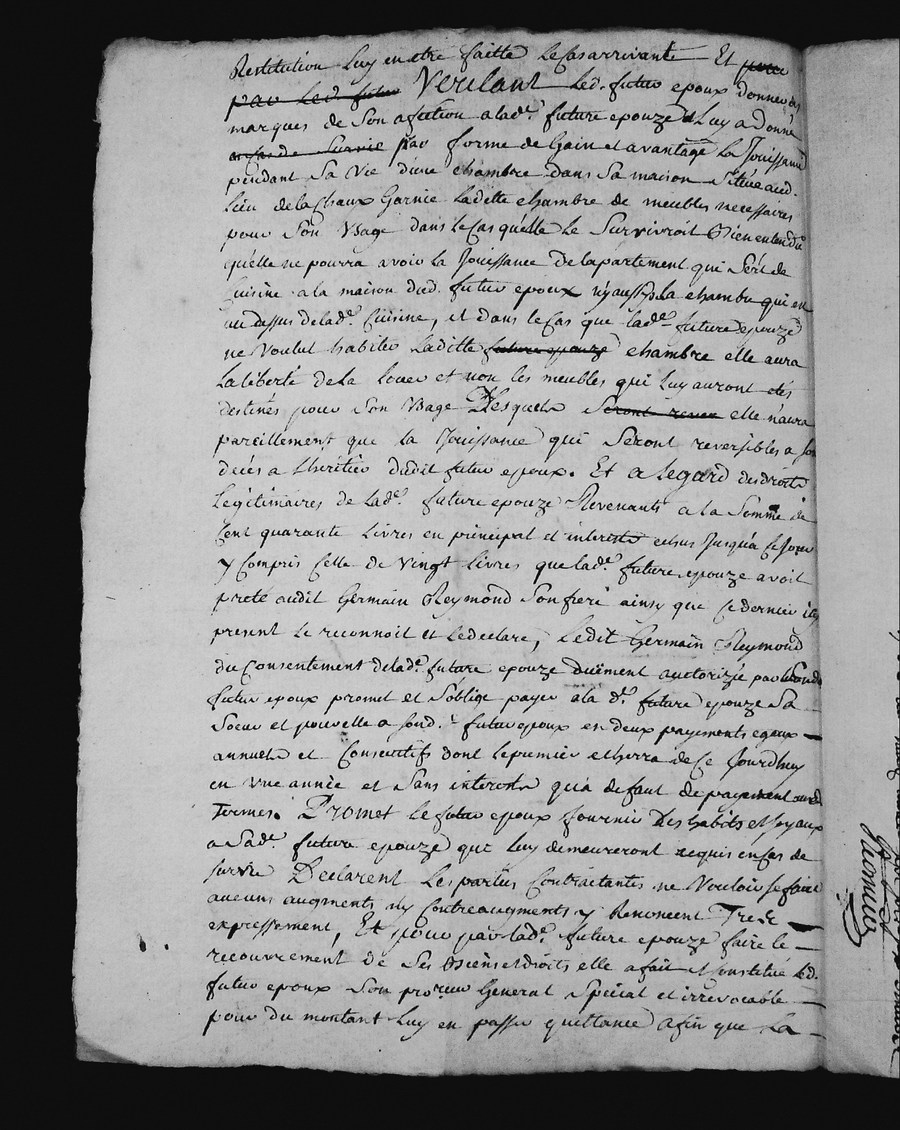 Restitution luy en etre faitte le cas arrivant Et pour
par led. futur Veulant led. futur epoux donner des
marques de son afection a lad.e future epouze Luy a donné
en cas de survie par forme de Gain et avantage la Jouissance
pendant Sa Vie d'une chambre dans Sa maison Sitüée aud.
lieu de la Chaux Garnie laditte chambre de meubles necessaires
pour Son Usage dans le Cas qu'elle le Survivroit Bien entendu
qu'elle ne pourra avoir la Jouissance de lapartement qui Sert de
Cuisine a la maison dud. futur epoux ny aussy la chambre qui est
au dessus de lad.e Cuisine, et dans le Cas que lad.e future epouze
ne Voulut habiter Laditte future epouze chambre elle aura
la liberté de la louer et non les meubles qui Luy auront etés
destinés pour Son Usage Desquels Seront rever elle n'aura
pareillement que la Jouissance qui Seront reversibles a son
decés a Lheritier dudit futur epoux. Et a legard des droits
legitimaires de lad.e future epouze Revenants a la Somme de
Cent quarante livres en principal et interets Jusqu'a ce Jour
y Compris Celle de Vingt livres que lad.e future epouze avoit
preté audit Germain Reymond Son frere ainsy que Ce dernier icy
present le reconnoit et le declare, ledit Germain Reymond
du Consentement de lad.e future epouze duëment autorizée par Sond.
futur epoux promet et S'oblige payer a la d.e future epouze Sa
Soeur et pour elle a Sond. futur epoux en deux payements egaux
annuels et Consecutifs dont le premier de Ce Jourdhuy
en une année et Sans interets qu'a defaut de payement aud.
Termes. Promet le futur epoux fournir Des habits et Joyaux
a Sad.e future epouze qui luy demeureront aquis en Cas de
Survie Declarent les parties Contractantes ne Vouloir se faire
aucuns augments ny Contreaugments y Renoncent Tres
expressement, Et pour par lad.e future epouze faire le
recouvrement de Ses Biens et droits elle a fait et Constitué led.
futur epoux Son procureur General Spécial et irrevocable
pour du montant Luy en passer quittance afin que La